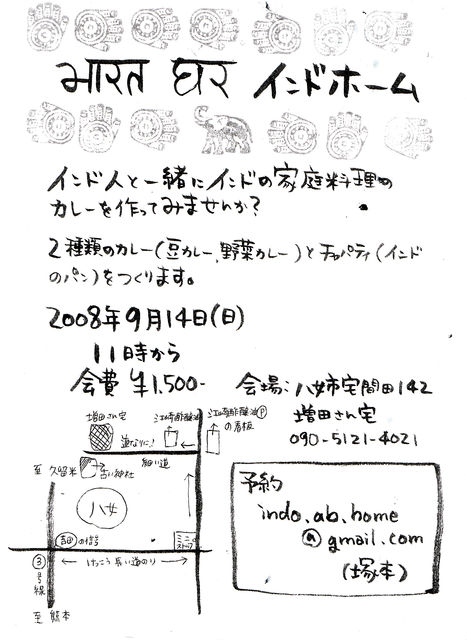 भारत घर インドホーム
インド人と一緒にインドの家庭料理の
カレーを作ってみませんか?
2種類のカレー(豆カレー、野菜カレー)とチャパティ(インド
のパン)をつくります。
2008年9月14日(日)
11時から
会費 ¥1,500-
会場:八女市宅間田142
増田さん宅
090-5121-4021
増田さん宅
江崎酢醸油
江崎酢醸油Ⓟ
の看板
道なりに!
細い道
至 久留米
古い神社
八女
吉田の信号
ミニ
ストップ
けっこう長い道のり
③号線
至 熊本
予約
indo.ab.home
@gmail.com
(塚本)